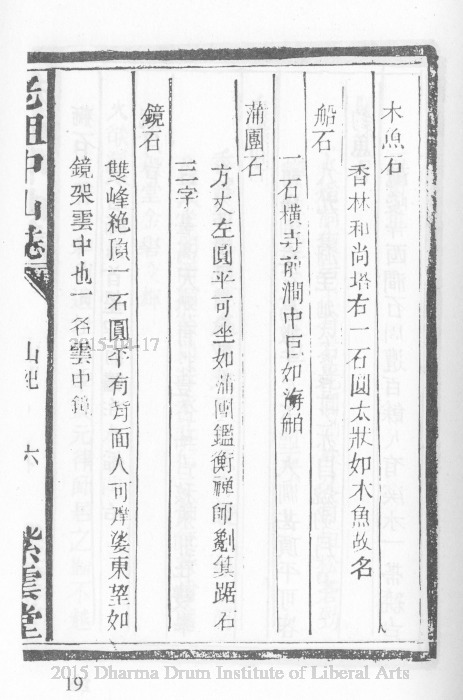 木魚石
香林和尚塔右一石圓太狀如木魚故名
船石
一石橫寺前澗中巨如海舶
蒲團石
方丈左圓平可坐如蒲團鑑衡禪師劖箕踞石
三字
鏡石
雙峰絶頂一石圓平有背面人可摩娑東望如
鏡架雲中也一名雲中鏡
老祖中山志
山紀
六
紫雲堂
2015-04-17
2015 Dharma Drum Institute of Liberal Arts
19